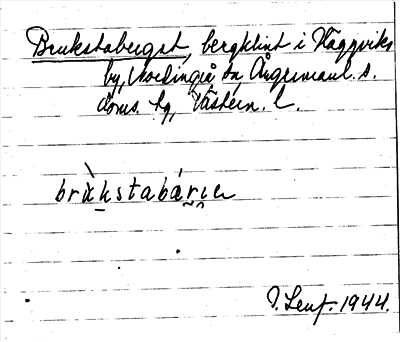 Brukstaberget, bergklint i Häggviks
by, Nordingrå sn, Ångermanl. s.
doms. tg, Västern. l.
brukstabárıe
J. Lenf. 1944.